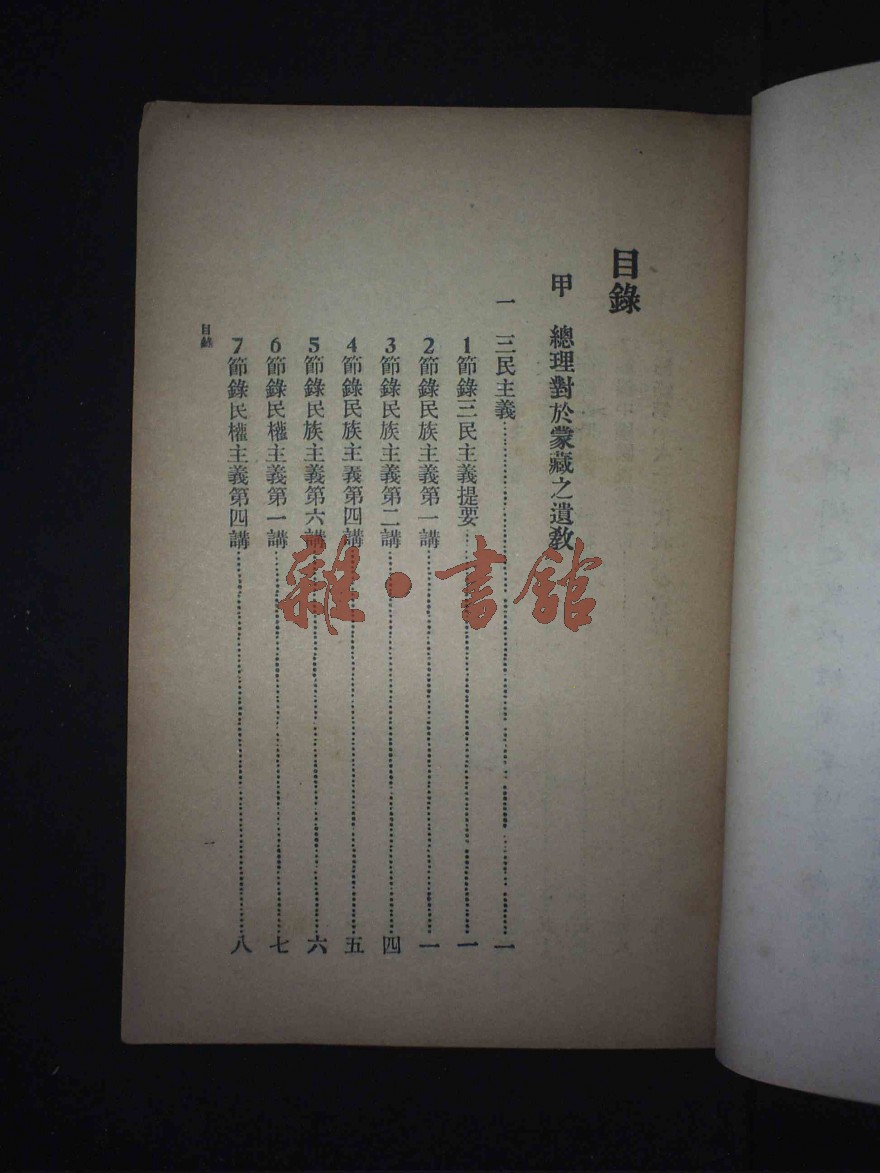 目錄
甲　總理對於蒙藏之遺敎
一　三民主義………一
1節錄三民主義提要………一
2節錄民族主義第一講………一
3節錄民族主義第二講………四
4節錄民族主義第四講………五
5節錄民族主義第六講………六
6節錄民權主義第一講………七
7節錄民權主義第四講………八
目錄
一
雜·書館